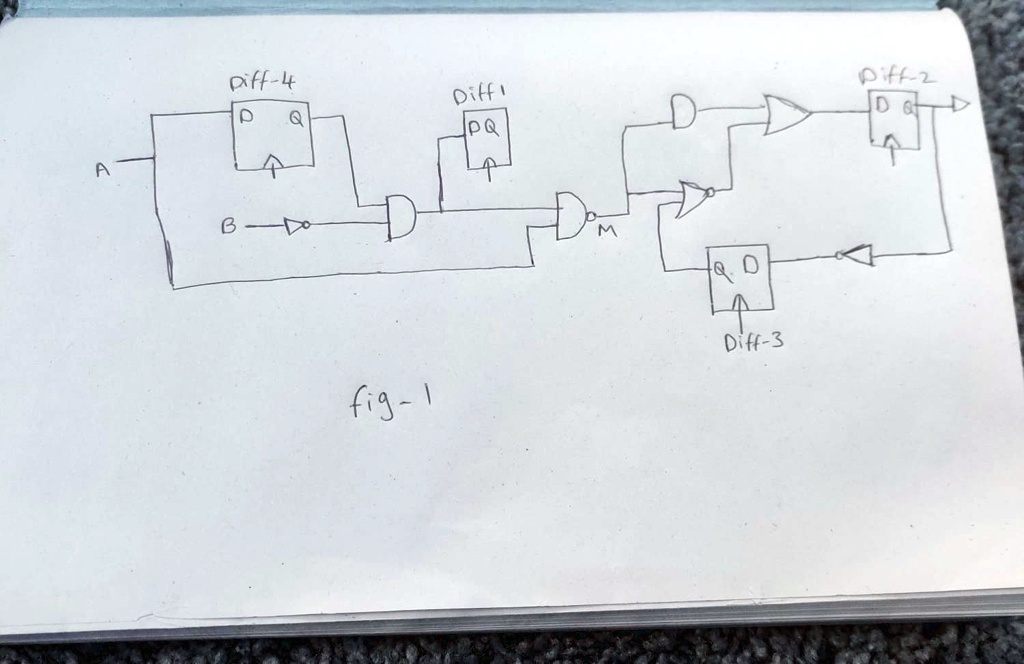 Diff-4
Diff1
Diff-2
D Q
D Q
D Q
A
B
M
Q D
Diff-3
fig-1